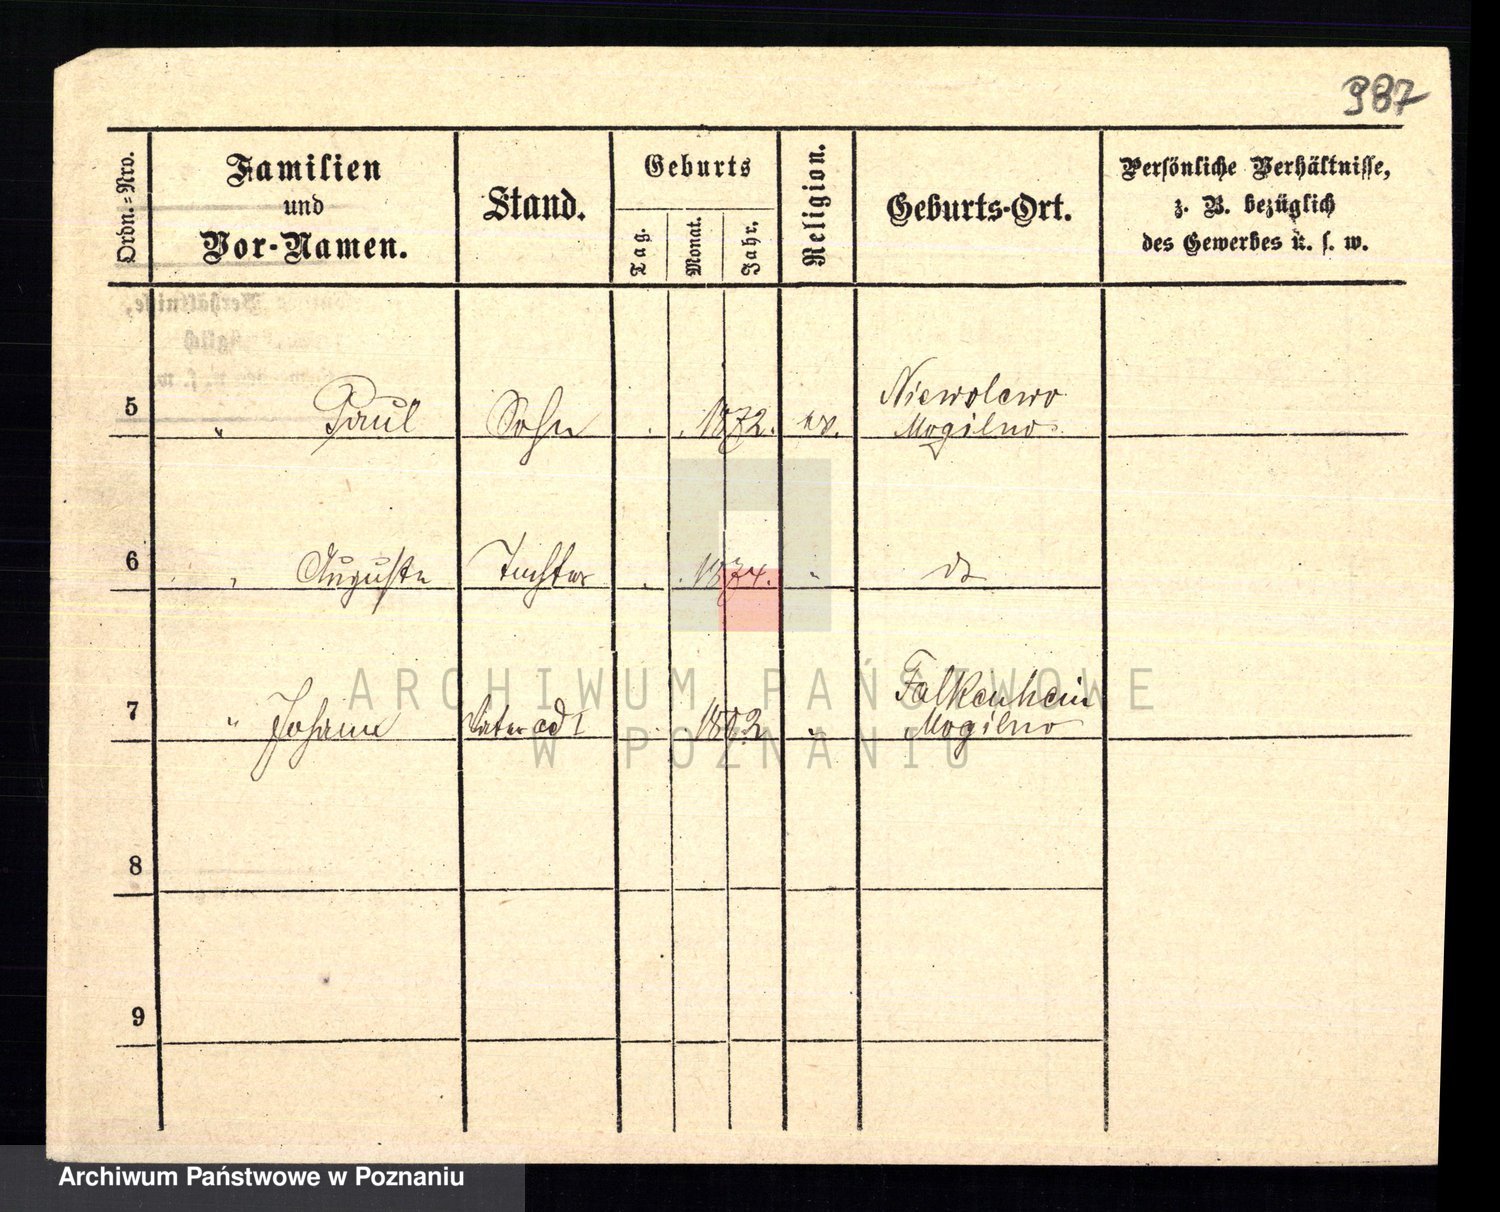 987
Ordn.-Nro.
Familien
und
Vor-Namen.
Stand.
Geburts
Tag.
Monat.
Jahr.
Religion.
Geburts-Ort.
Persönliche Verhältnisse,
z. B. bezüglich
des Gewerbes u. s. w.
5 " Paul Sohn . . 1872. ev. Niewolewo
Mogilno
6 " Auguste Tochter . . 1874. " do
7 " Johann Vater ad 1 1802 " Falkenhein
Mogilno
8
9
ARCHIWUM PAŃSTWOWE
W POZNANIU
Archiwum Państwowe w Poznaniu